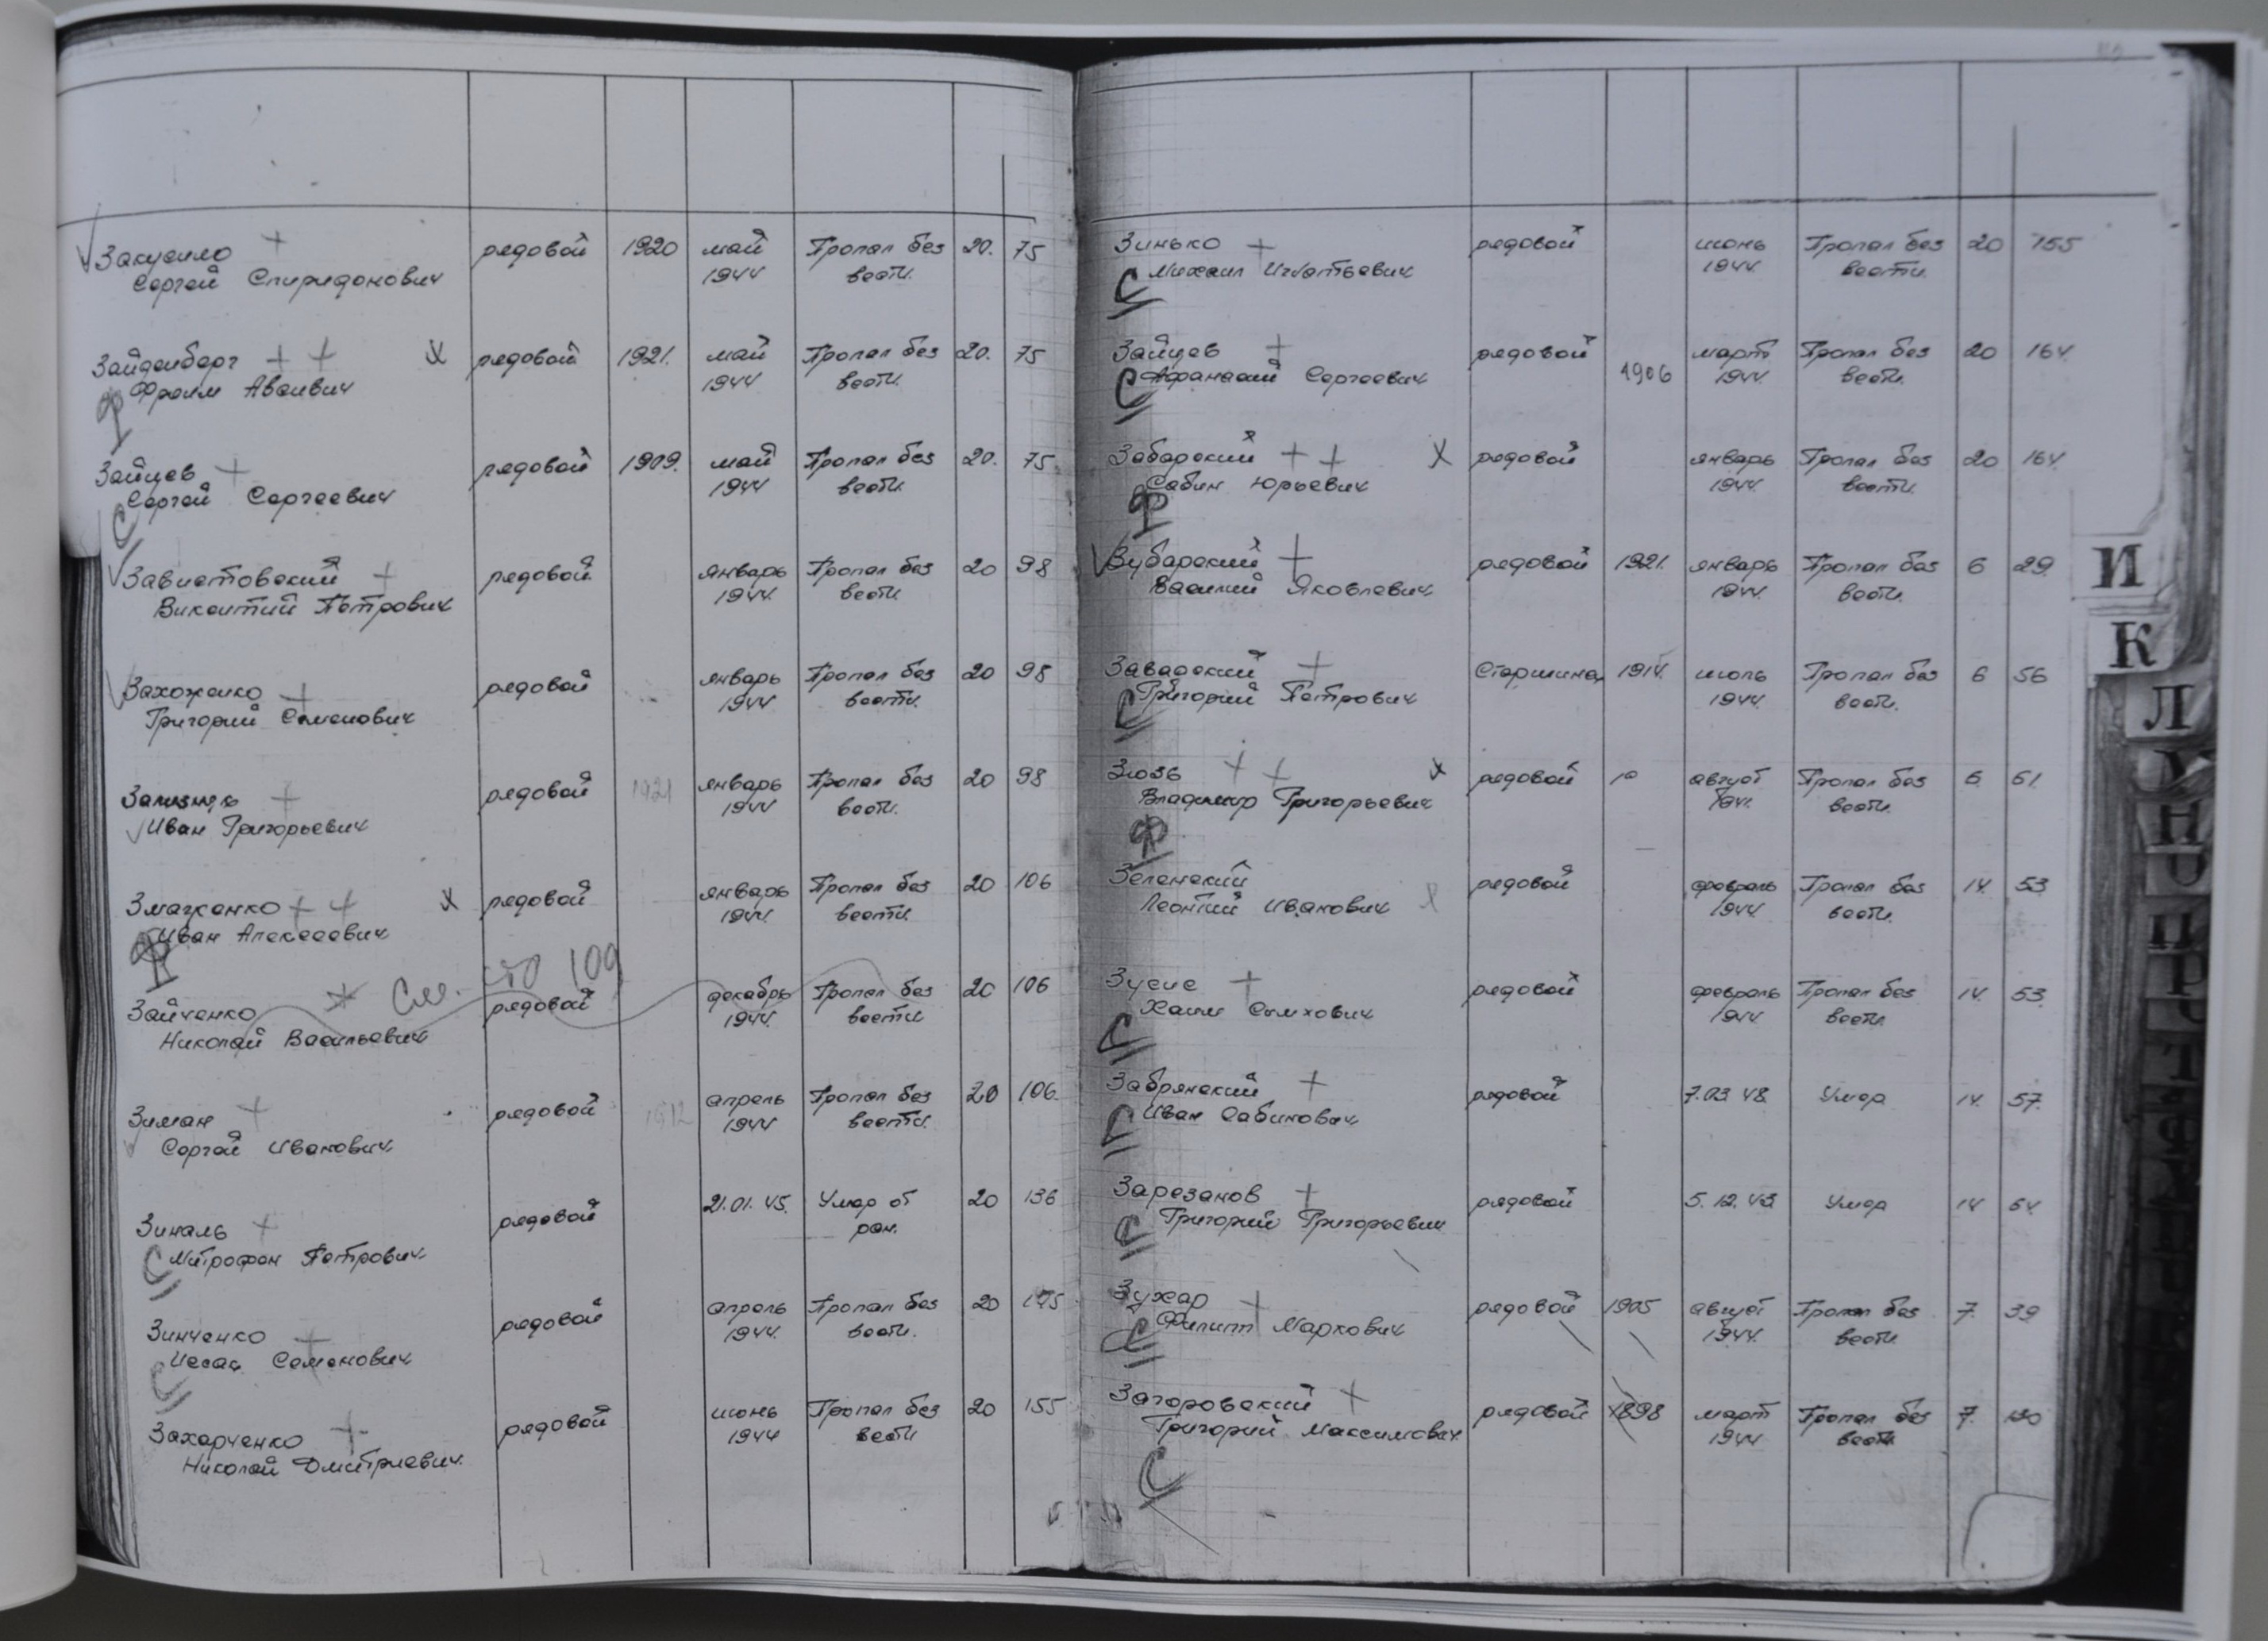 Закусило рядовой 1920 май Пропал без 20. 75
Сергей Спиридонович 1944 вести.
Зайденберг х рядовой 1921. май Пропал без 20. 75
Ф Фроим Авсивич 1944 вести.
Зайцев рядовой 1909. май Пропал без 20. 75
Сергей Сергеевич 1944 вести.
С
Завистовский рядовой январь Пропал без 20 98
Викентий Петрович 1944. вести.
Захоженко рядовой январь Пропал без 20 98
Григорий Семенович 1944 вести.
рядовой 1921 январь Пропал без 20 98
Иван Григорьевич 1944 вести.
Змаженко х рядовой январь Пропал без 20 106
Ф Иван Алексеевич 1944. вести.
См. 109
Зайченко рядовой декабрь Пропал без 20 106
Николай Васильевич 1944. вести
Зиман рядовой 1912 апрель Пропал без 20 106.
Сергей Иванович. 1944 вести.
Зиналь рядовой 21.01.45. Умер от 20 136
С Митрофан Петрович. ран.
Зинченко рядовой апрель Пропал без 20
С Иссак Семенович 1944. вести.
Захарченко рядовой июнь Пропал без 20 155
Николай Дмитриевич. 1944 вести
Зинько рядовой июнь Пропал без 20 155
С Михаил Игнатьевич 1944. вести.
Зайцев рядовой март Пропал без 20 164
С Афанасий Сергеевич 1906 1944. вести.
Забарский х рядовой январь Пропал без 20 164.
Сабин Юрьевич 1944. вести.
Ф
Зубарский рядовой 1921. январь Пропал без 6 29.
Василий Яковлевич 1944. вести.
Завадский Старшина 1914. июль Пропал без 6 56
С Григорий Петрович 1944. вести.
Зюзь х рядовой август Пропал без 6 61.
Владимир Григорьевич вести.
Ф
Зеленский рядовой февраль Пропал без 14. 53
Леонтий Иванович х 1944 вести.
Зусис рядовой февраль Пропал без 14. 53.
Хаим Сымхович 1944 вести.
С
Забрянский рядовой 7.03 48 Умер 14. 57.
С Иван Сабинович
Зарезанов рядовой 5.12.43 Умер 14 64
С Григорий Григорьевич
Зухар рядовой 1905 август Пропал без 7. 39
С Филипп Маркович 1944. вести
Загоровский рядовой 1898 март Пропал без 7.
Григорий Максимович 1944 вести
С
И
К
Л
Н
П
Р